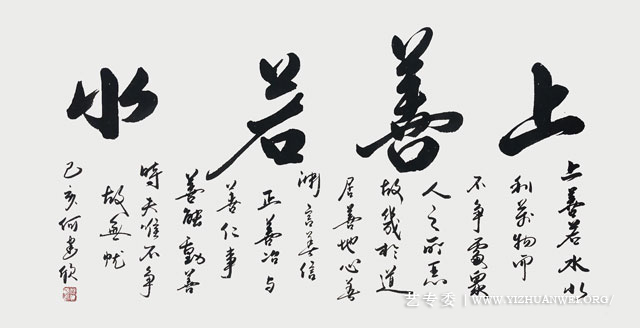 上善若水
上善若水水
利萬物而
不争處眾
人之所惡
故幾於道
居善地心善
渊言善信
正善治与
善仁事
善能動善
時夫唯不争
故無忧
己亥何欣
艺专委 | WWW.YIZHUANWEI.ORG/